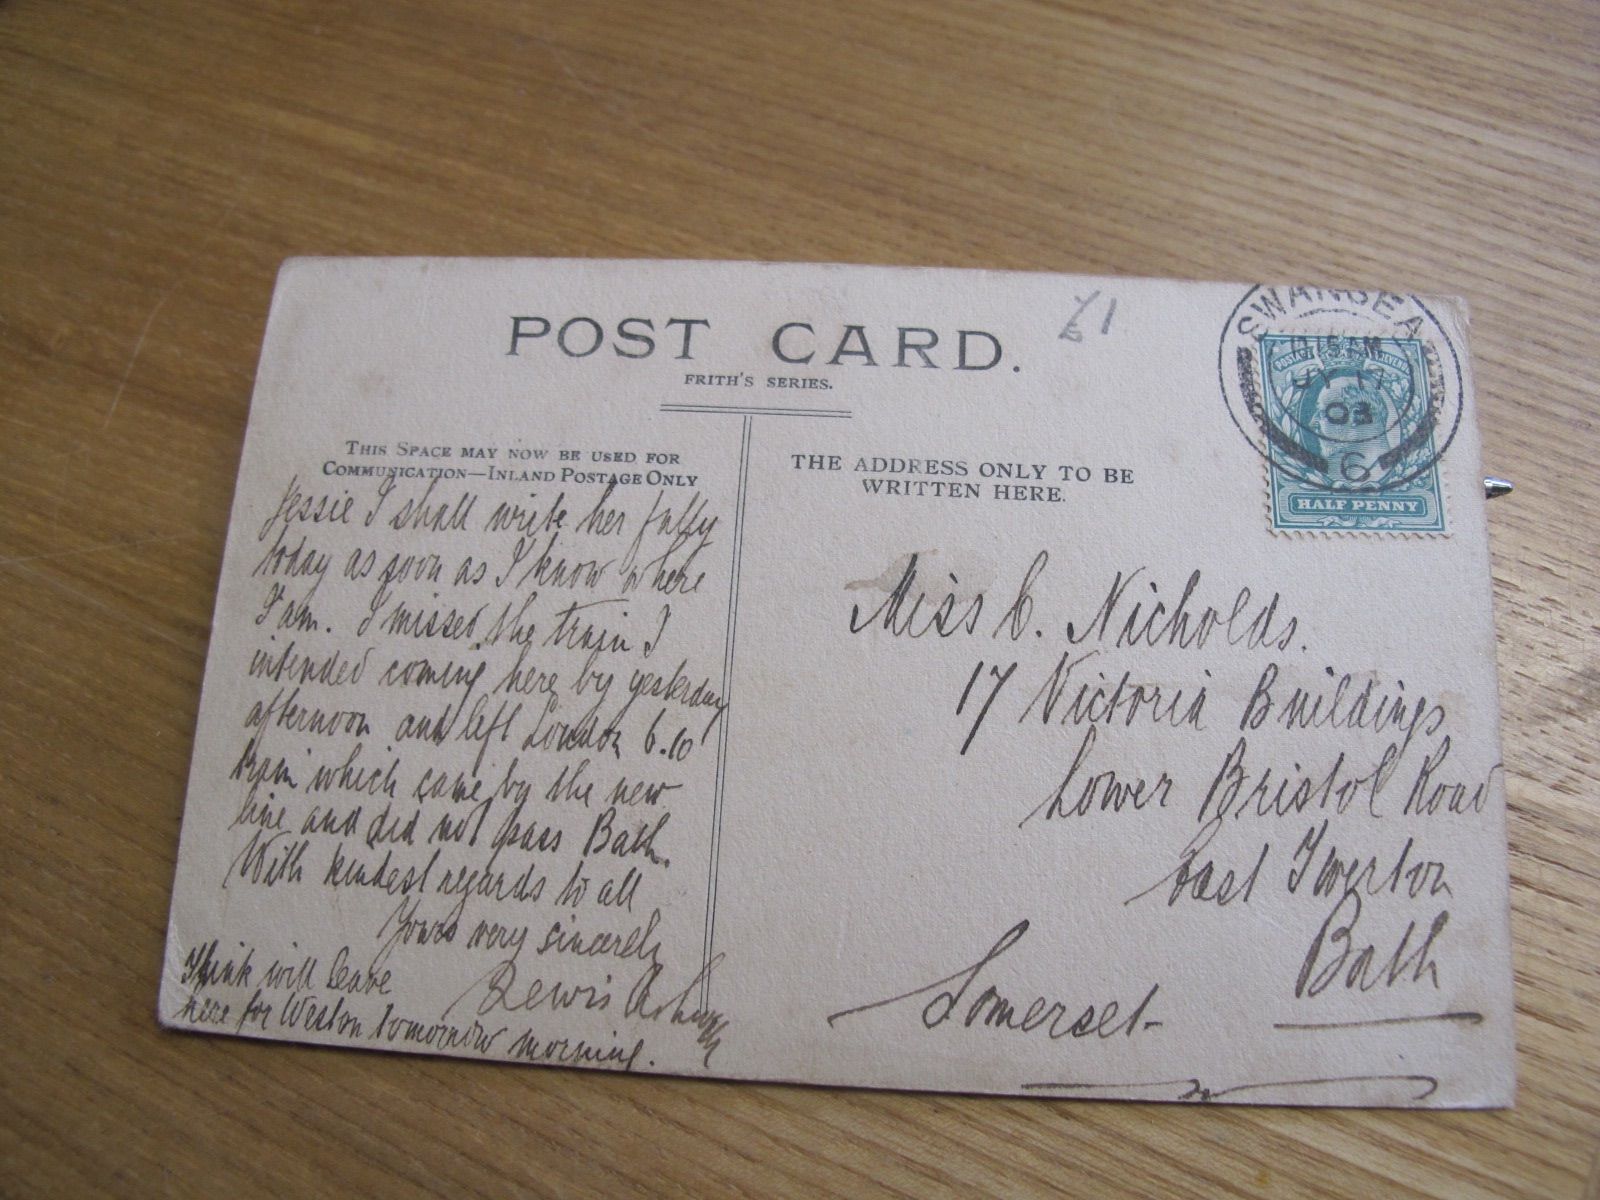 POST CARD.
FRITH'S SERIES.
£1
SWANSEA
15 AM
JY 17
03
6
HALF PENNY
THIS SPACE MAY NOW BE USED FOR
COMMUNICATION—INLAND POSTAGE ONLY
Jessie I shall write her fully
today as soon as I know where
I am. I missed the train I
intended coming here by yesterday
afternoon and left London 6.10
train which came by the new
line and did not pass Bath.
With kindest regards to all
Yours very sincerely
Lewis
I think will leave
here for Weston tomorrow morning.
THE ADDRESS ONLY TO BE
WRITTEN HERE.
Miss C. Nicholds.
17 Victoria Buildings
Lower Bristol Road
East Twerton
Bath
Somerset